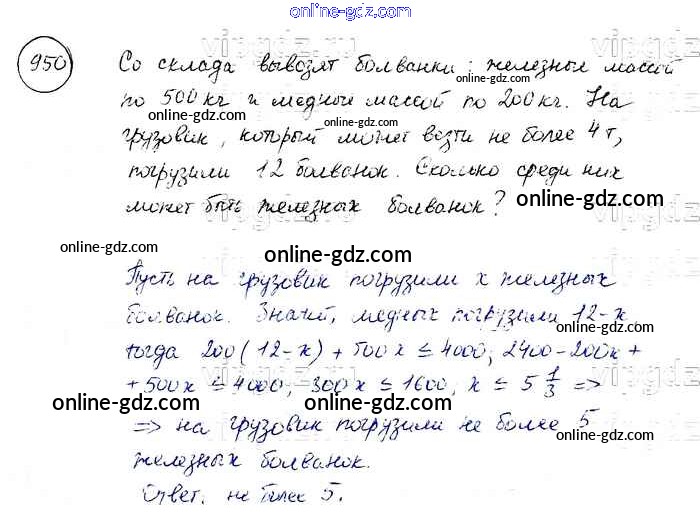 online-gdz.com
950
Со склада вывозят болванки: железные массой
по 500 кг и медные массой по 200 кг. На
грузовик, который может везти не более 4 т,
погрузили 12 болванок. Сколько среди них
может быть железных болванок?
Пусть на грузовик погрузили x железных
болванок. Значит, медных погрузили 12-x
тогда 200(12-x) + 500x ≤ 4000; 2400-200x +
+ 500x ≤ 4000; 300x ≤ 1600, x ≤ 5 1/3 =>
=> на грузовик погрузили не более 5
железных болванок.
Ответ. не более 5.
online-gdz.com
online-gdz.com
online-gdz.com
online-gdz.com
online-gdz.com
online-gdz.com
online-gdz.com
online-gdz.com
online-gdz.com
online-gdz.com
online-gdz.com